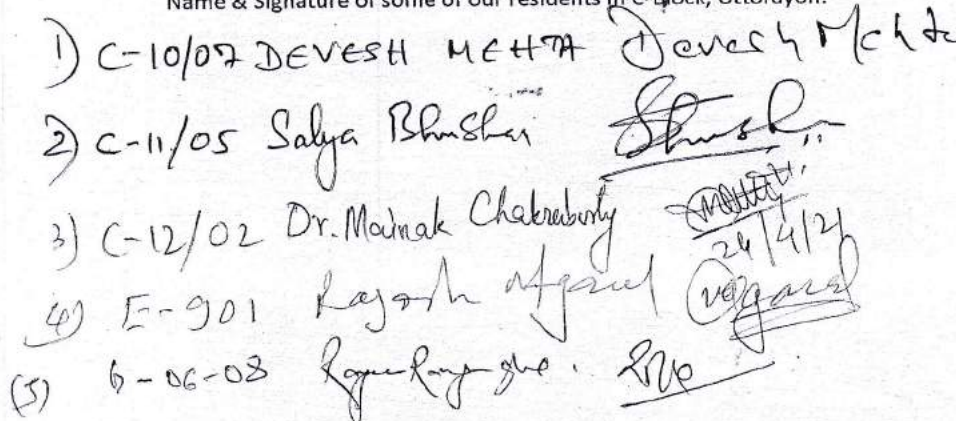 Name & Signature of some of our residents in C-Block, Uttorayon.
1) C-10/07 DEVESH MEHTA Devesh Mehta
2) C-11/05 Satya Bhushan
3) C-12/02 Dr. Mainak Chakraborty
24/4/21
4) E-901 Rajesh Agarwal
(5) 06-08